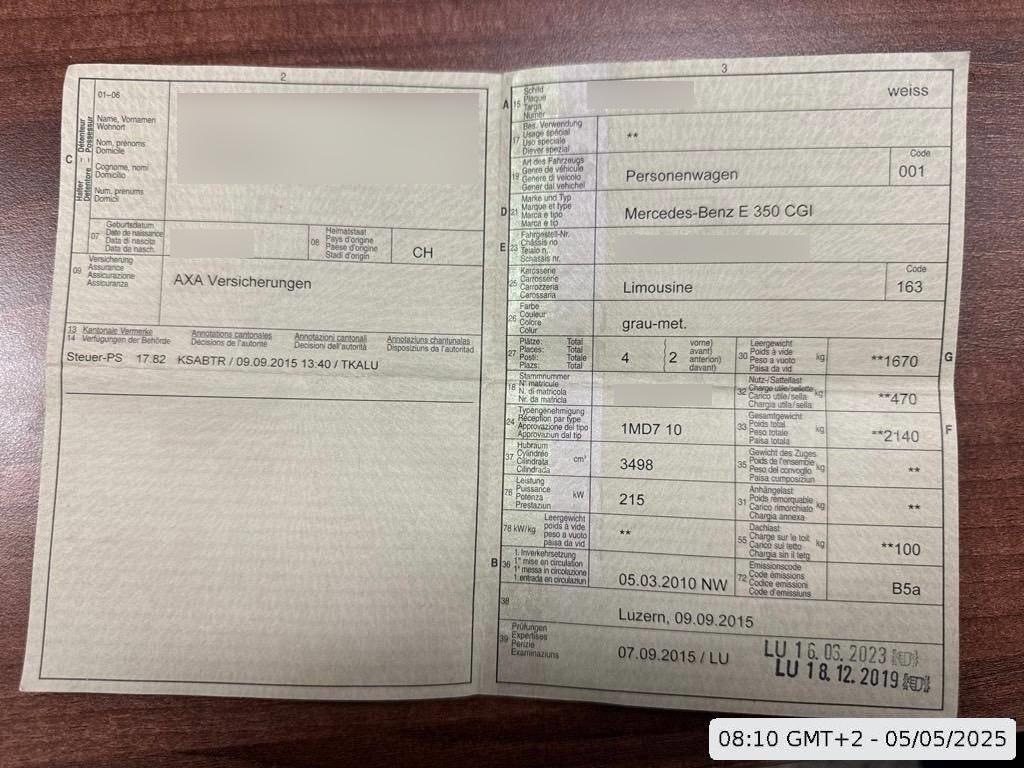 2
01-06
Name, Vornamen
Wohnort
Nom, prénoms
Domicile
Cognome, nomi
Domicilio
Num, prenums
Domicil
C
Halter Détenteur
Detentore Possessur
07
Geburtsdatum
Date de naissance
Data di nascita
Data da nasch.
08
Heimatstaat
Pays d'origine
Paese d'origine
Stadi d'origin
CH
09
Versicherung
Assurance
Assicurazione
Assicuranza
AXA Versicherungen
13 Kantonale Vermerke Annotations cantonales Annotazioni cantonali Annotaziuns chantunalas
14 Verfügungen der Behörde Décisions de l'autorité Decisioni dell'autorità Disposiziuns da l'autoritad
Steuer-PS 17.82 KSABTR / 09.09.2015 13:40 / TKALU
3
A 15
Schild
Plaque
Targa
Numer
weiss
17
Bes. Verwendung
Usage spécial
Uso speciale
Diever spezial
**
19
Art des Fahrzeugs
Genre de véhicule
Genere di veicolo
Gener dal vehichel
Personenwagen
Code
001
D 21
Marke und Typ
Marque et type
Marca e tipo
Marca e tip
Mercedes-Benz E 350 CGI
E 23
Fahrgestell-Nr.
Châssis no
Telaio n.
Schassis nr.
25
Karosserie
Carrosserie
Carrozzeria
Carossaria
Limousine
Code
163
26
Farbe
Couleur
Colore
Colur
grau-met.
27
Plätze: Total
Places: Total
Posti: Totale
Plazs: Total
4
2
vorne)
avant)
anteriori)
davant)
30
Leergewicht
Poids à vide
Peso a vuoto
Paisa da vid
kg
**1670
G
18
Stammnummer
N° matricule
N. di matricola
Nr. da matricla
32
Nutz-/Sattellast
Charge utile/sellette
Carico utile/sella
Chargia utila/sella
kg
**470
24
Typengenehmigung
Réception par type
Approvazione del tipo
Approvaziun dal tip
1MD7 10
33
Gesamtgewicht
Poids total
Peso totale
Paisa totala
kg
**2140
F
37
Hubraum
Cylindrée
Cilindrata
Cilindrada
cm³
3498
35
Gewicht des Zuges
Poids de l'ensemble
Peso del convoglio
Paisa cumposiziun
kg
**
76
Leistung
Puissance
Potenza
Prestaziun
kW
215
31
Anhängelast
Poids remorquable
Carico rimorchiato
Chargia annexa
kg
**
78 kW/kg
Leergewicht
poids à vide
peso a vuoto
paisa da vid
**
55
Dachlast
Charge sur le toit
Carico sul tetto
Chargia sin il tetg
kg
**100
B 36
1. Inverkehrsetzung
1re mise en circulation
1a messa in circolazione
1. entrada en circulaziun
05.03.2010 NW
72
Emissionscode
Code émissions
Codice emissioni
Code d'emissiuns
B5a
38
Luzern, 09.09.2015
39
Prüfungen
Expertises
Perizie
Examinaziuns
07.09.2015 / LU
LU 16.03.2023
LU 18.12.2019
08:10 GMT+2 - 05/05/2025